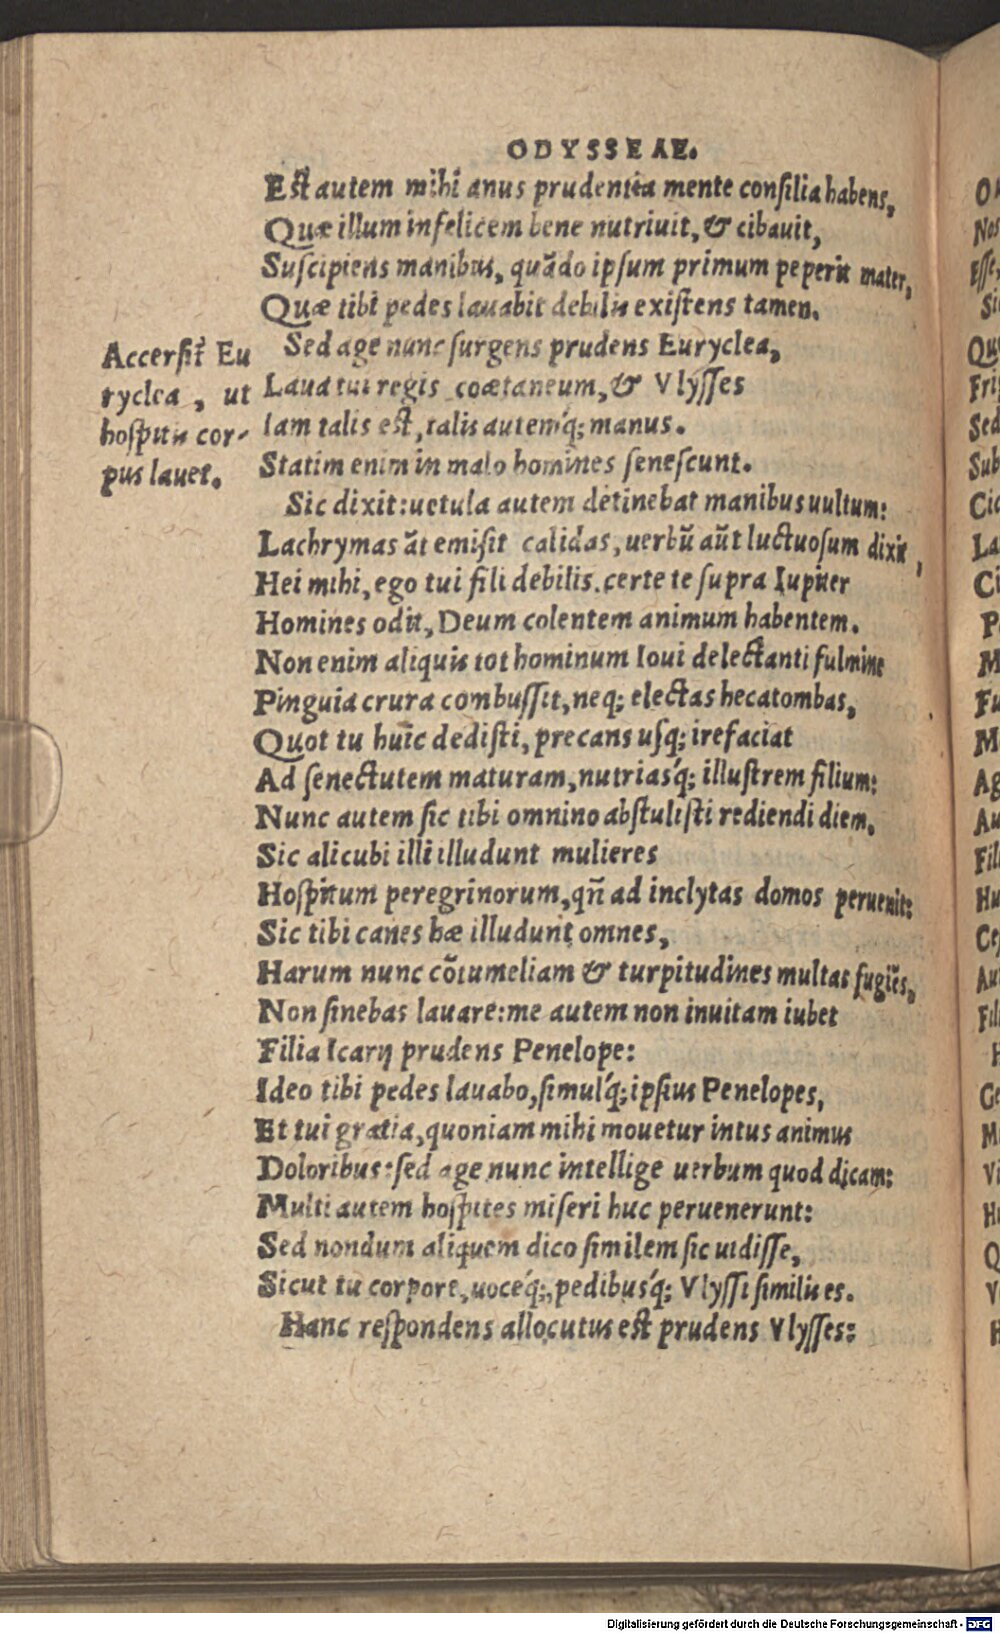 ODYSSEAE.
Est autem mihi anus prudentia mente consilia habens,
Quæ illum infelicem bene nutriuit, & cibauit,
Suscipiens manibus, quādo ipsum primum peperit mater,
Quæ tibi pedes lauabit debilis existens tamen.
Accersit̃ Eu
ryclea, ut
hospitis cor-
pus lauet.
Sed age nunc surgens prudens Euryclea,
Laua tui regis coætaneum, & Vlysses
Iam talis est, talis auteḿq; manus.
Statim enim in malo homines senescunt.
Sic dixit: uetula autem detinebat manibus uultum:
Lachrymas āt emisit calidas, uerbū aūt luctuosum dixit,
Hei mihi, ego tui fili debilis. certe te supra Iupiter
Homines odit, Deum colentem animum habentem.
Non enim aliquis tot hominum Ioui delectanti fulmine
Pinguia crura combussit, neq; electas hecatombas,
Quot tu huic dedisti, precans usq; irefaciat
Ad senectutem maturam, nutriaśq; illustrem filium:
Nunc autem sic tibi omnino abstulisti rediendi diem,
Sic alicubi illi illudunt mulieres
Hospitum peregrinorum, qñ ad inclytas domos peruenit:
Sic tibi canes hæ illudunt omnes,
Harum nunc cōtumeliam & turpitudines multas fugiēs,
Non sinebas lauare: me autem non inuitam iubet
Filia Icarij prudens Penelope:
Ideo tibi pedes lauabo, simuĺq; ipsius Penelopes,
Et tui gratia, quoniam mihi mouetur intus animus
Doloribus: sed age nunc intellige uerbum quod dicam:
Multi autem hospites miseri huc peruenerunt:
Sed nondum aliquem dico similem sic uidisse,
Sicut tu corpore, uoceq́;, pedibuśq; Vlyssi similis es.
Hanc respondens allocutus est prudens Vlysses:
Digitalisierung gefördert durch die Deutsche Forschungsgemeinschaft - DFG